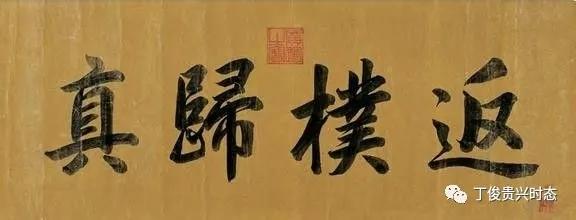 返樸歸真
丁俊贵兴时态